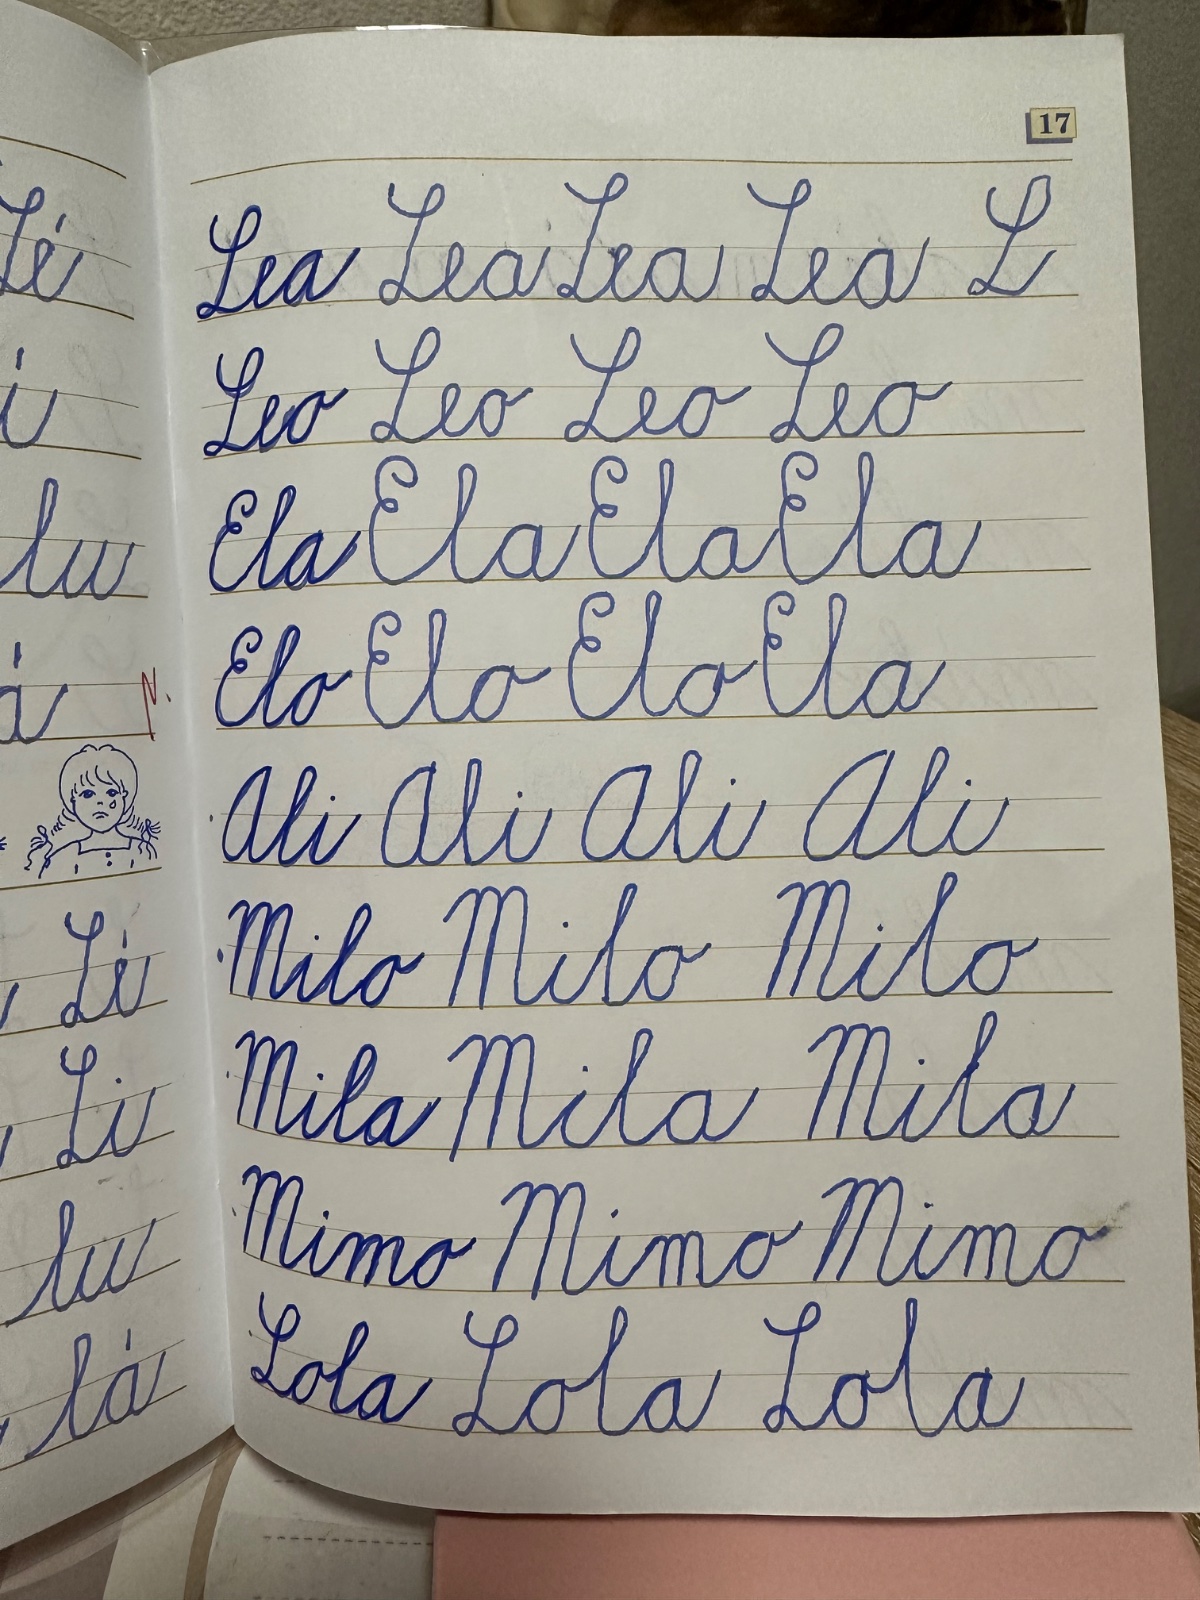 17
Lé
Lea Lea Lea Lea L
i
Leo Leo Leo Leo
lu
Ela Ela Ela Ela
á
N.
Elo Elo Elo Ela
Ali Ali Ali Ali
Lé
Milo Milo Milo
Li
Mila Mila Mila
lu
Mimo Mimo Mimo
lá
Lola Lola Lola